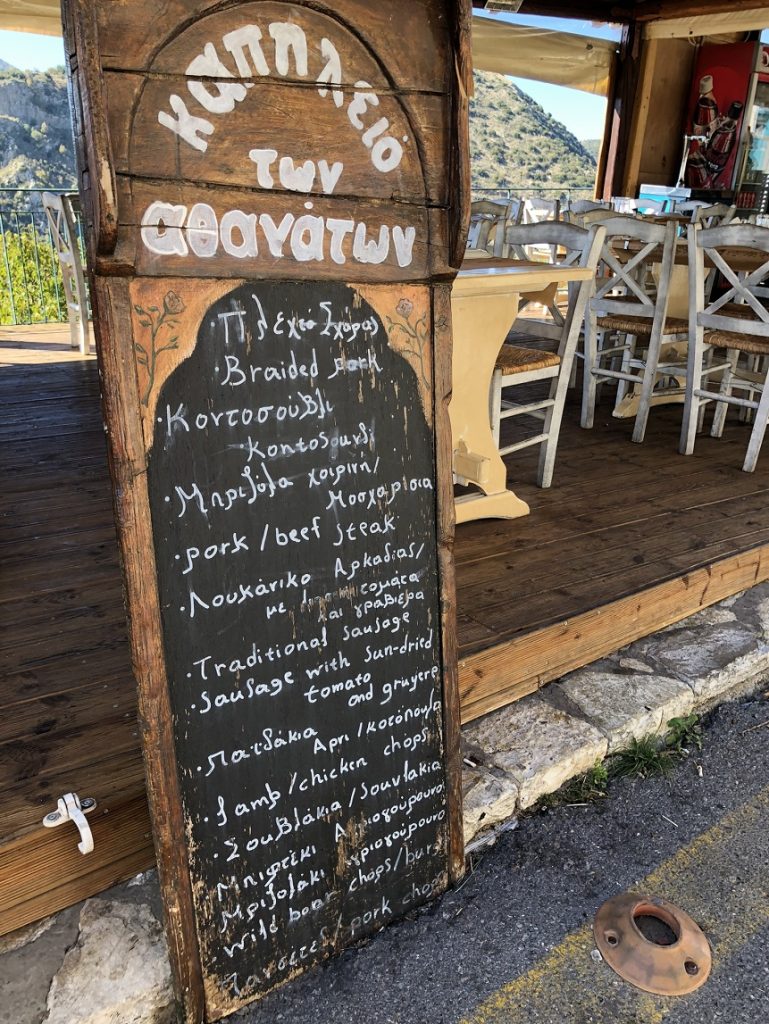 καπηλειό
των
αθανάτων
·Πλεχτό Σχάρας
·Braided pork
·Κοντοσούβλι
Kontosouvli
·Μπριζόλα χοιρινή/
Μοσχαρίσια
·pork/beef steak
·Λουκάνικο Αρκαδίας/
με τομάτα
και γραβιέρα
·Traditional sausage
·sausage with sun-dried
tomato
and gruyere
·Παϊδάκια Αρνι/κοτόπουλο
·Lamp/chicken chops
·Σουβλάκια/souvlakia
Μπιφτέκι Αγριογούρουνο
Μπριζολάκι αγριογούρουνο
·wild boar chops/burg
Πανσέτες/pork chops